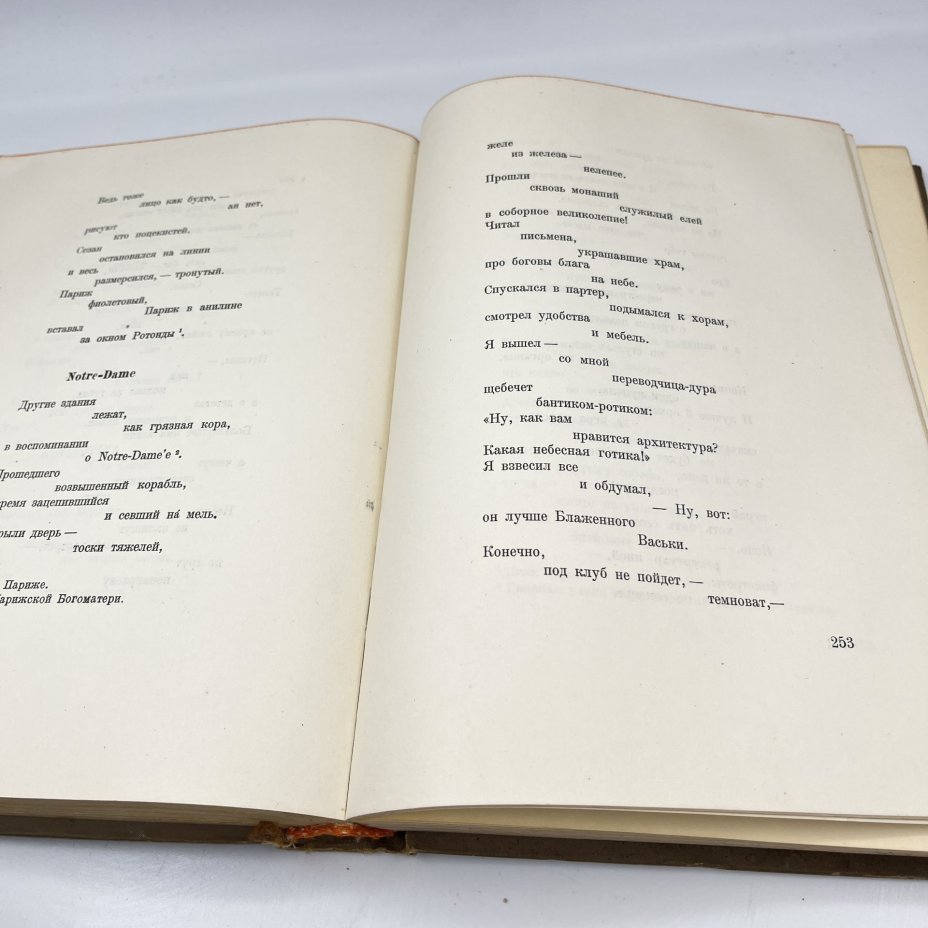 Ведь голое
лицо как будто, —
ан нет,
рисуют
кто поцекистей.
Сезан
остановился на линии
и весь
размерсился, — тронутый.
Париж
фиолетовый,
Париж в анилине
вставал
за окном Ротонды ¹.
Notre-Dame
Другие здания
лежат,
как грязная кора,
в воспоминании
о Notre-Dame'e ².
Прошедшего
возвышенный корабль,
время зацепившийся
и севший на́ мель.
рыли дверь —
тоски тяжелей,
Париже.
Парижской Богоматери.
желе
из железа —
нелепее.
Прошли
сквозь монаший
служилый елей
в соборное великолепие!
Читал
письмена,
украшавшие храм,
про боговы блага
на небе.
Спускался в партер,
подымался к хорам,
смотрел удобства
и мебель.
Я вышел —
со мной
переводчица-дура
щебечет
бантиком-ротиком:
«Ну, как вам
нравится архитектура?
Какая небесная готика!»
Я взвесил все
и обдумал,
— Ну, вот:
он лучше Блаженного
Васьки.
Конечно,
под клуб не пойдет, —
темноват,—
253